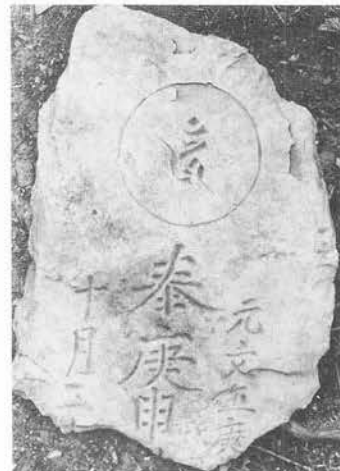 元文五庚
奉庚申
十月